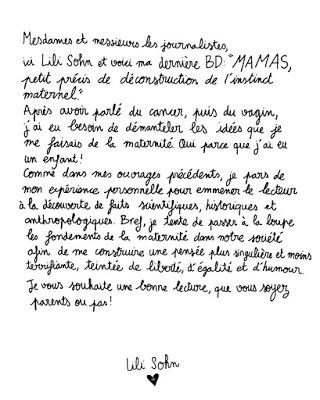 Mesdames et messieurs les journalistes,
ici Lili Sohn et voici ma dernière BD: "MAMAS,
petit précis de déconstruction de l'instinct
maternel."
Après avoir parlé du cancer, puis du vagin,
j'ai eu besoin de démanteler les idées que je
me faisais de la maternité. Oui parce que j'ai eu
un enfant!
Comme dans mes ouvrages précédents, je pars de
mon expérience personnelle pour emmener le lecteur
à la découverte de faits scientifiques, historiques et
anthropologiques. Bref, je tente de passer à la loupe
les fondements de la maternité dans notre société
afin de me construire une pensée plus singulière et moins
terrifiante, teintée de liberté, d'égalité et d'humour.
Je vous souhaite une bonne lecture, que vous soyez
parents ou pas!
Lili Sohn